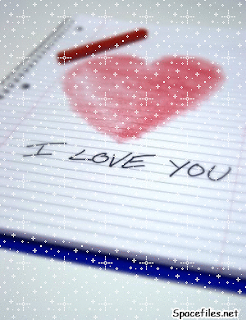 I LOVE YOU
Spacefiles.net